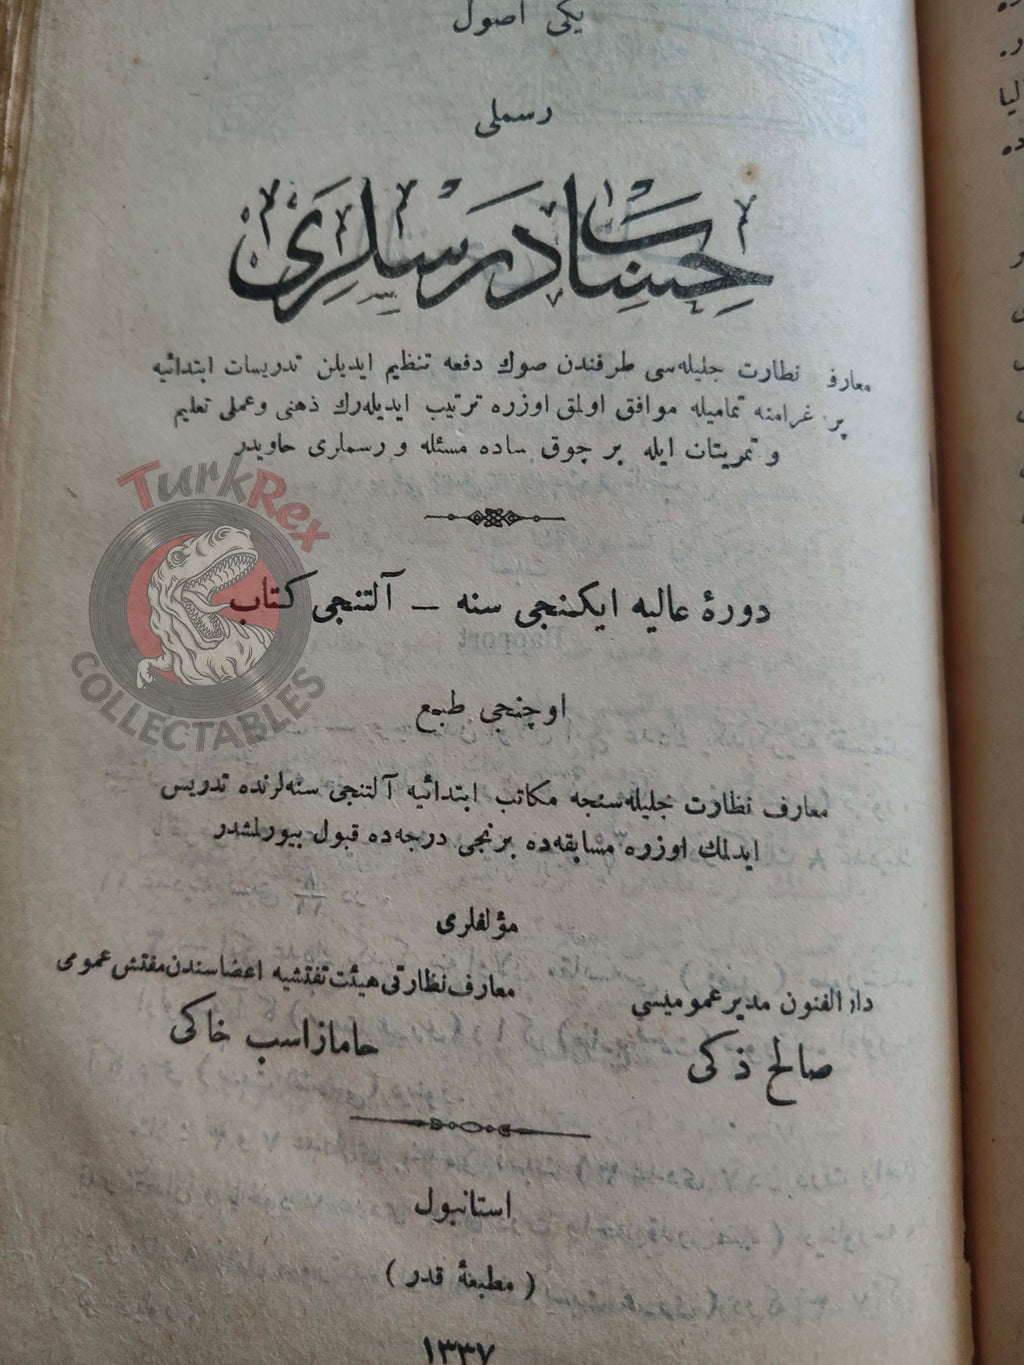 یکی اصول
رسملی
حساب درسلری
معارف نظارت جلیله‌سی طرفندن صوك دفعه تنظیم ایدیلن تدریسات ابتدائیه
پروغرامنه تمامیله موافق اولمق اوزره ترتیب ایدیله‌رك ذهنی و عملی تعلیم
و تمرینات ایله بر چوق ساده مسئله و رسملری حاویدر
TurkRex
COLLECTABLES
دورهٔ عالیه ایکنجی سنه — آلتنجی کتاب
اوچنجی طبع
معارف نظارت جلیله‌سنجه مکاتب ابتدائیه آلتنجی سنه‌لرنده تدریس
ایدلمك اوزره مسابقه‌ده برنجی درجه‌ده قبول بیورلمشدر
مؤلفلری
دار الفنون مدیر عمومیسی
صالح ذکی
معارف نظارتی هیئت تفتشیه اعضاسندن مفتش عمومی
حامازاسب خاکی
استانبول
( مطبعهٔ قدر )
١٣٣٧